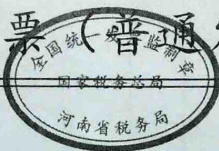 票（普通
全国统一发票监制章
国家税务总局
河南省税务局